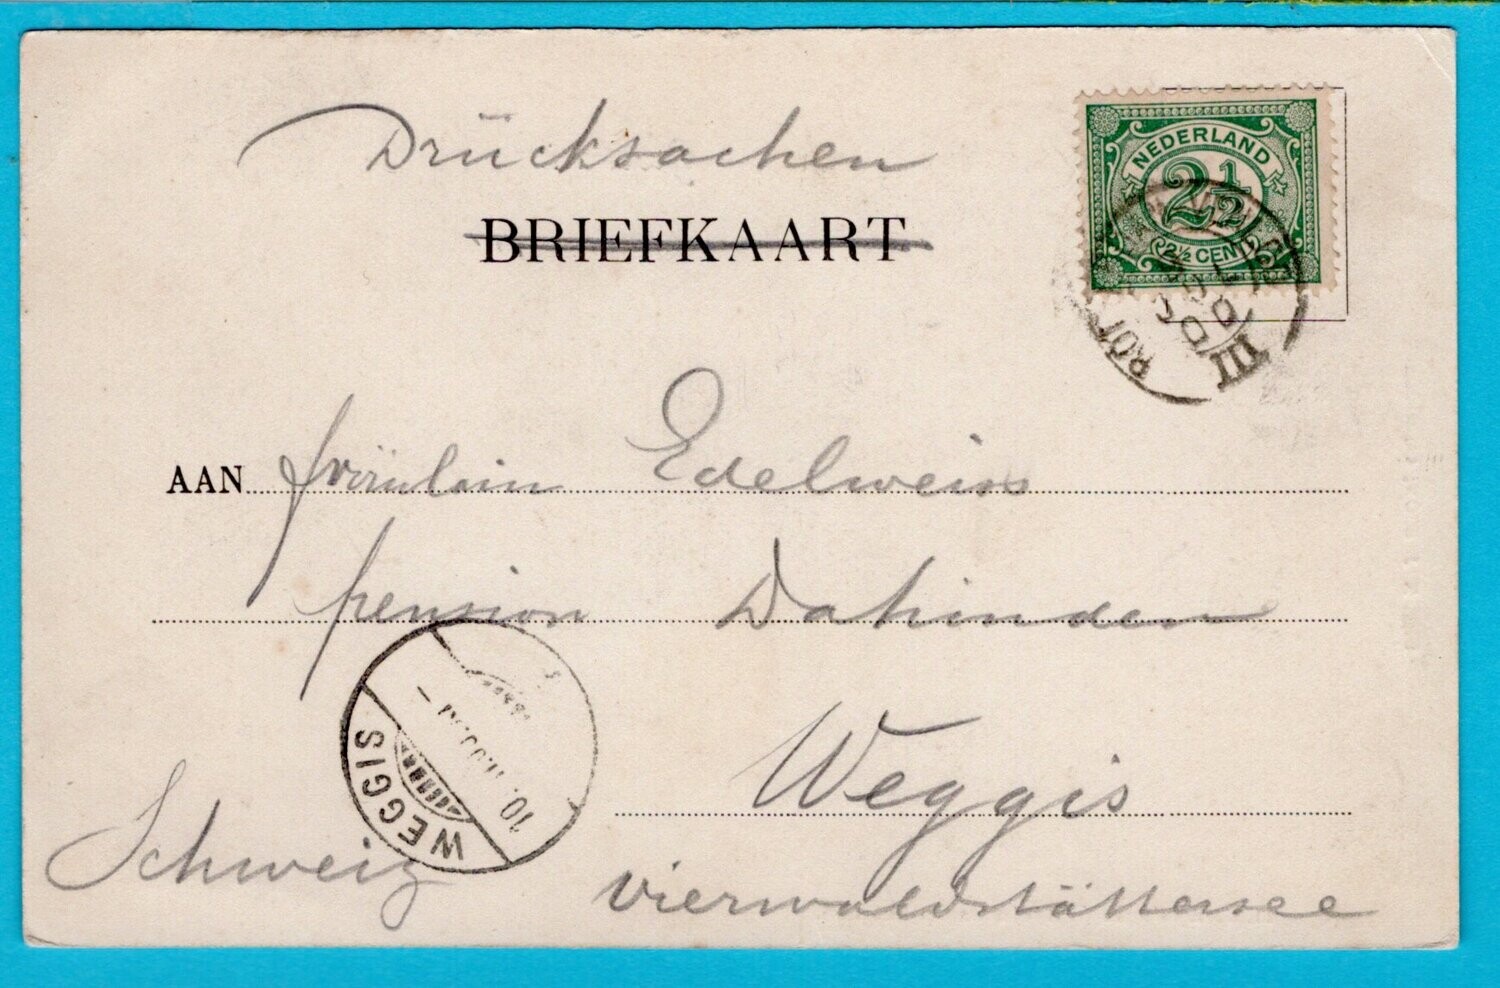 Drücksachen
BRIEFKAART
NEDERLAND
2½
2½ CENT
III
AAN fräulein Edelweiss
pension Dahinden
Weggis
Schweiz
vierwaldstättersee
WEGGIS
10.